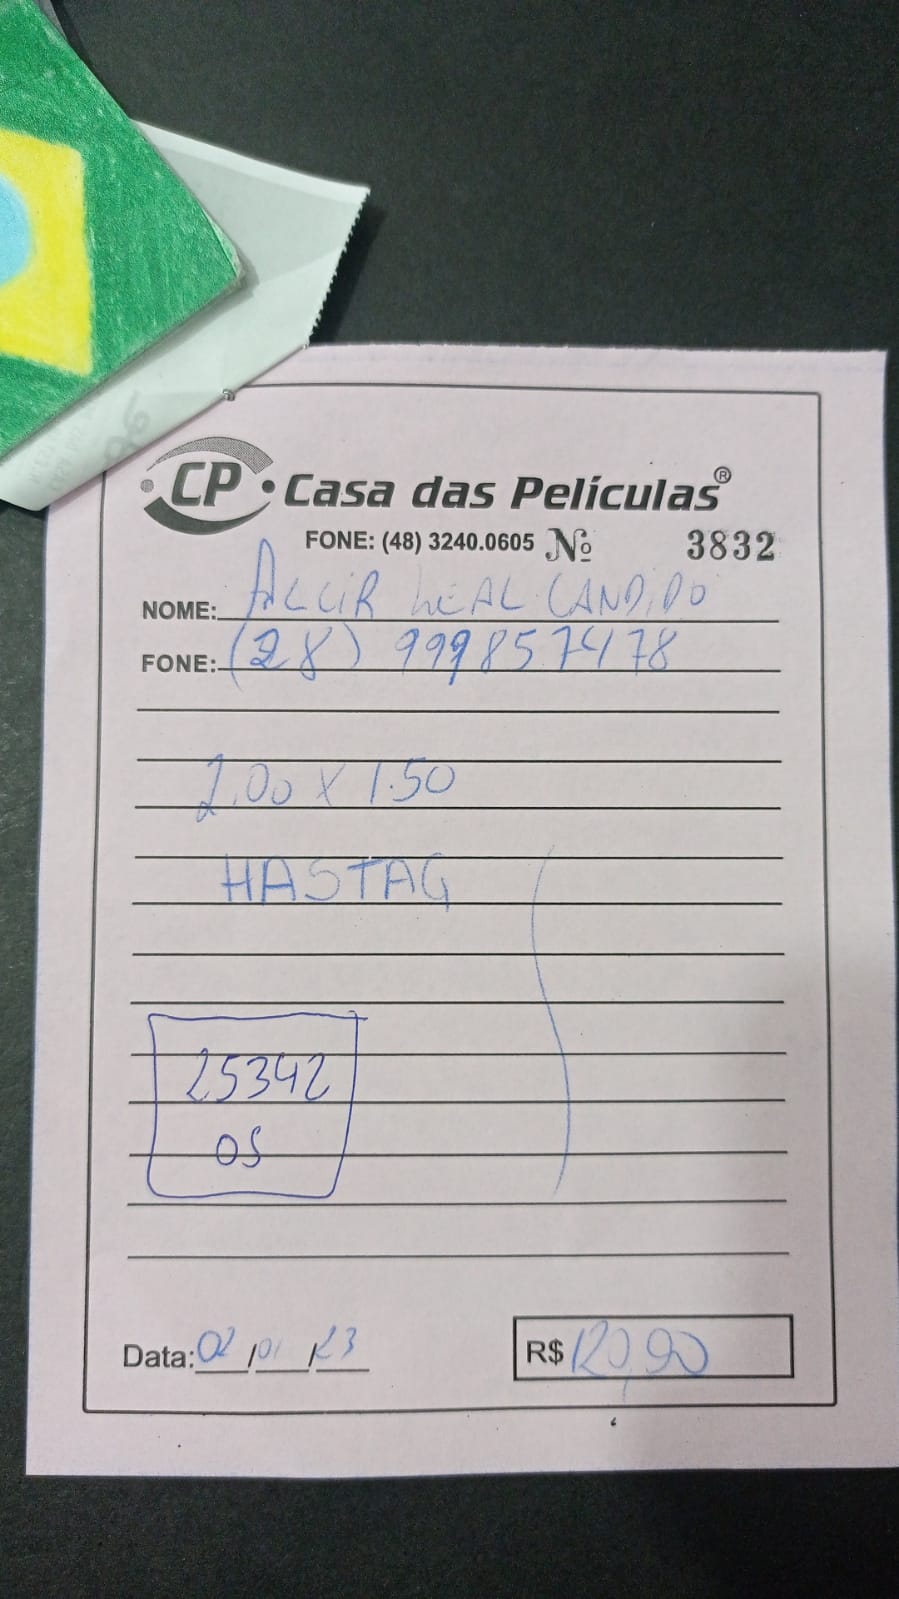 CP Casa das Películas®
FONE: (48) 3240.0605 Nº 3832
NOME: ALCIR LEAL CANDIDO
FONE: (28) 999857478
2.00 x 1.50
HASTAG
25342
OS
Data: 02/01/23
R$ 120,90